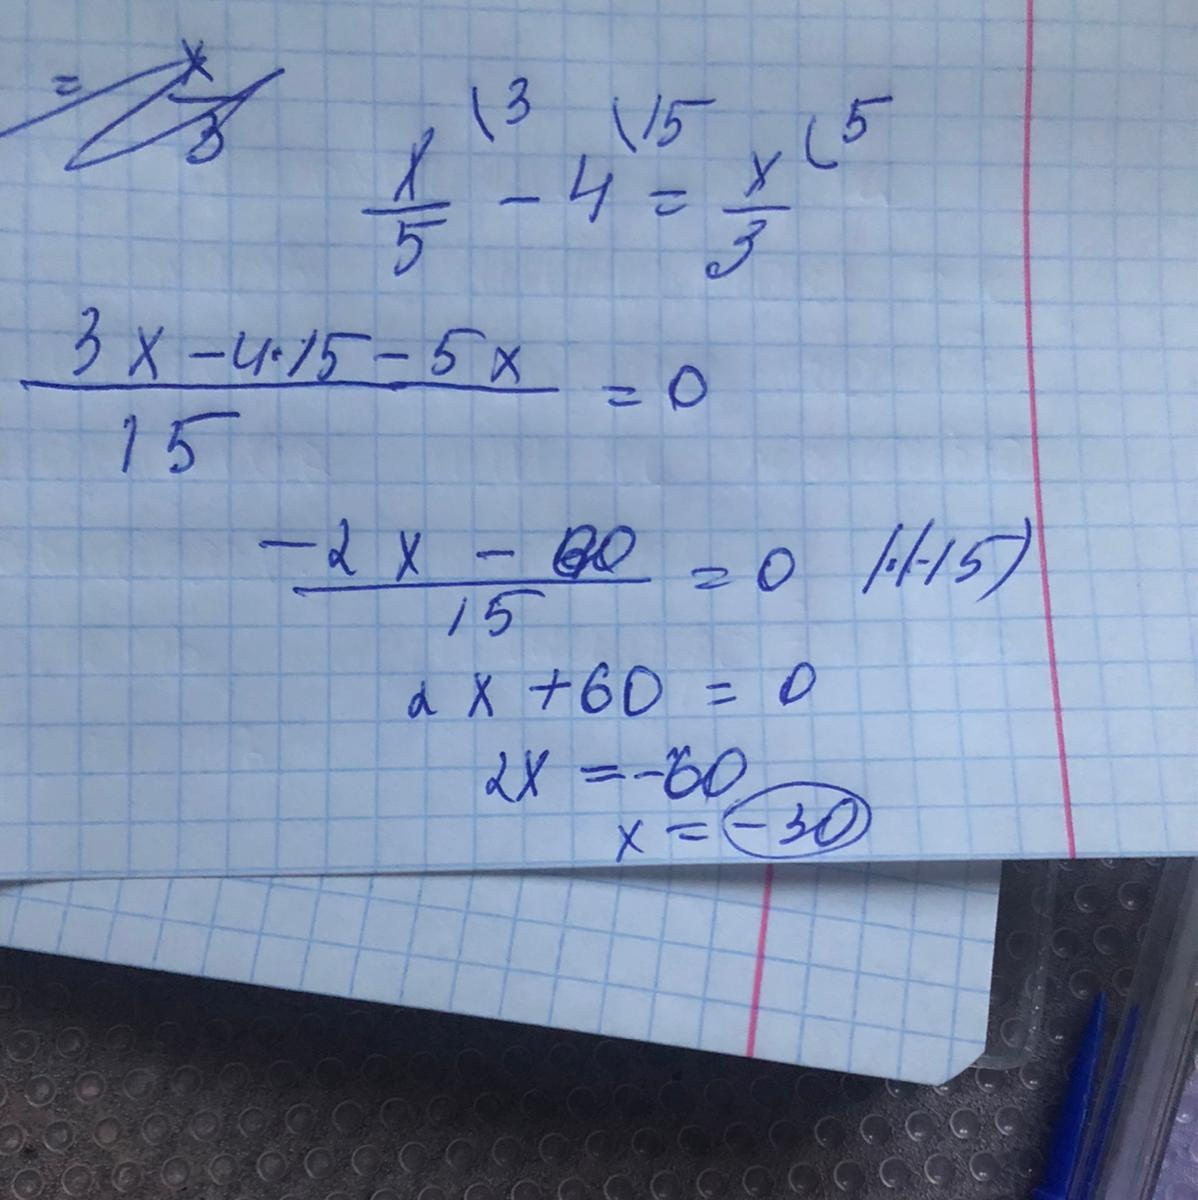 = x/3
x/5 \3 - 4 \15 = x/3 \5
(3x - 4·15 - 5x)/15 = 0
(-2x - 60)/15 = 0 |·(-15)
2x + 60 = 0
2x = -60
x = -30